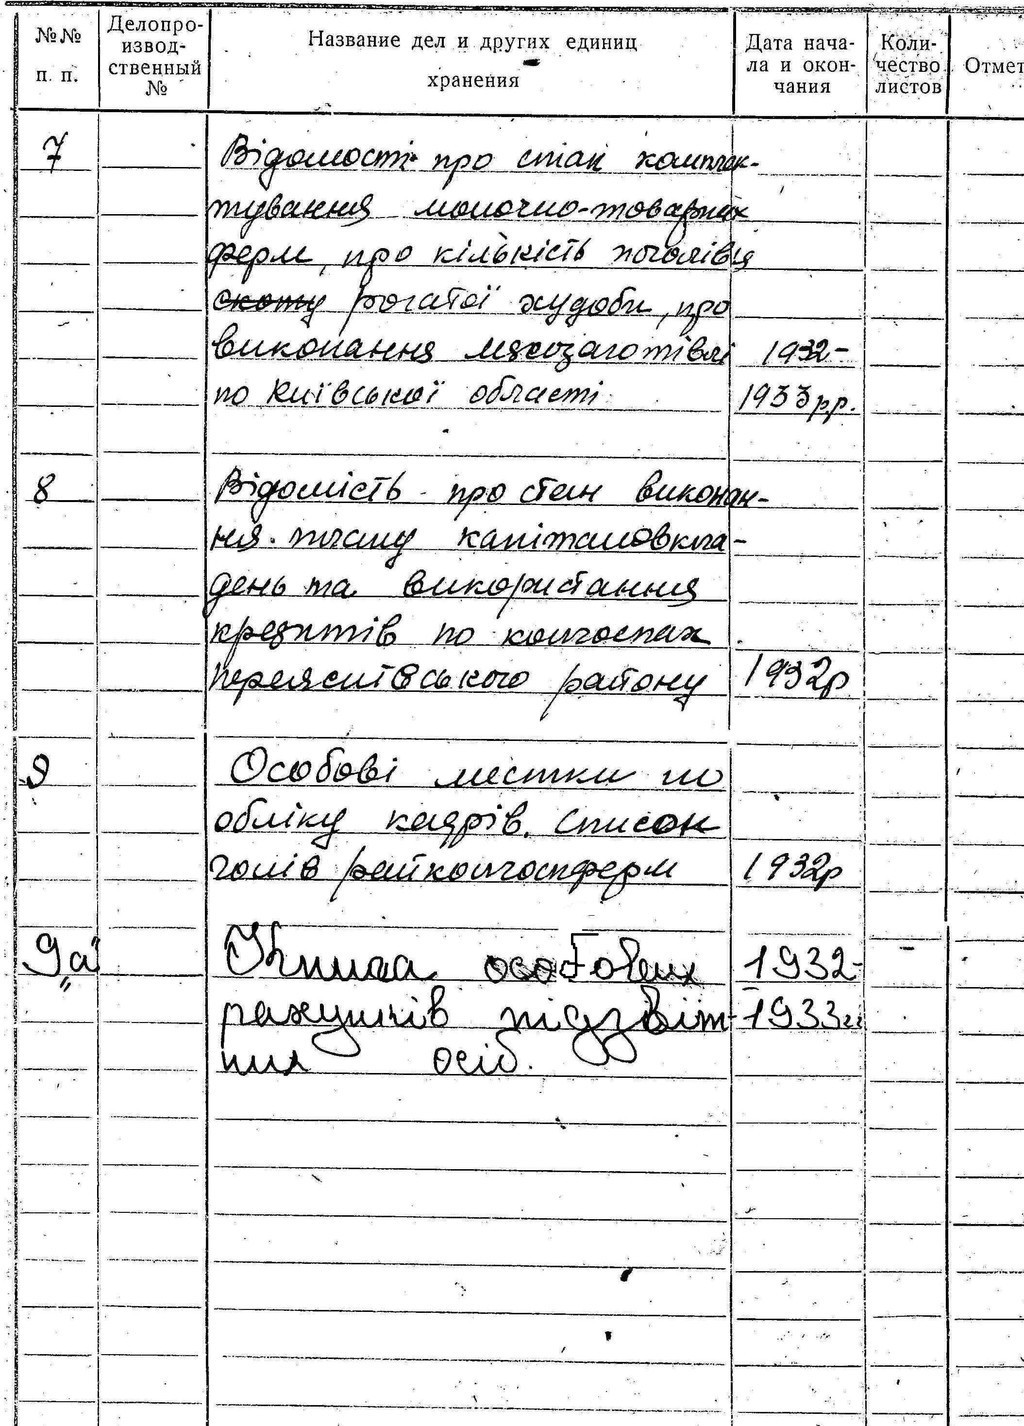 №№ п. п.
Делопро-
извод-
ственный
№
Название дел и других единиц
хранения
Дата нача-
ла и окон-
чания
Коли-
чество
листов
Отмет
7
Відомості про стан комплек-
тування молочно-товарних
ферм, про кількість поголівця
скоту рогатої худоби, про
виконання мясозаготівлі 1932-
по Київської області 1933 р.р.
8
Відомість про стан виконан-
ня плану капіталовкла-
день та використання
кредитів по колгоспах
Переяслівського району 1932р
9
Особові листки по
обліку кадрів. Список
голів райколгоспферм 1932р
9"а"
Книга особових 1932-
рахунків підзвіт- 1933гг
них осіб.